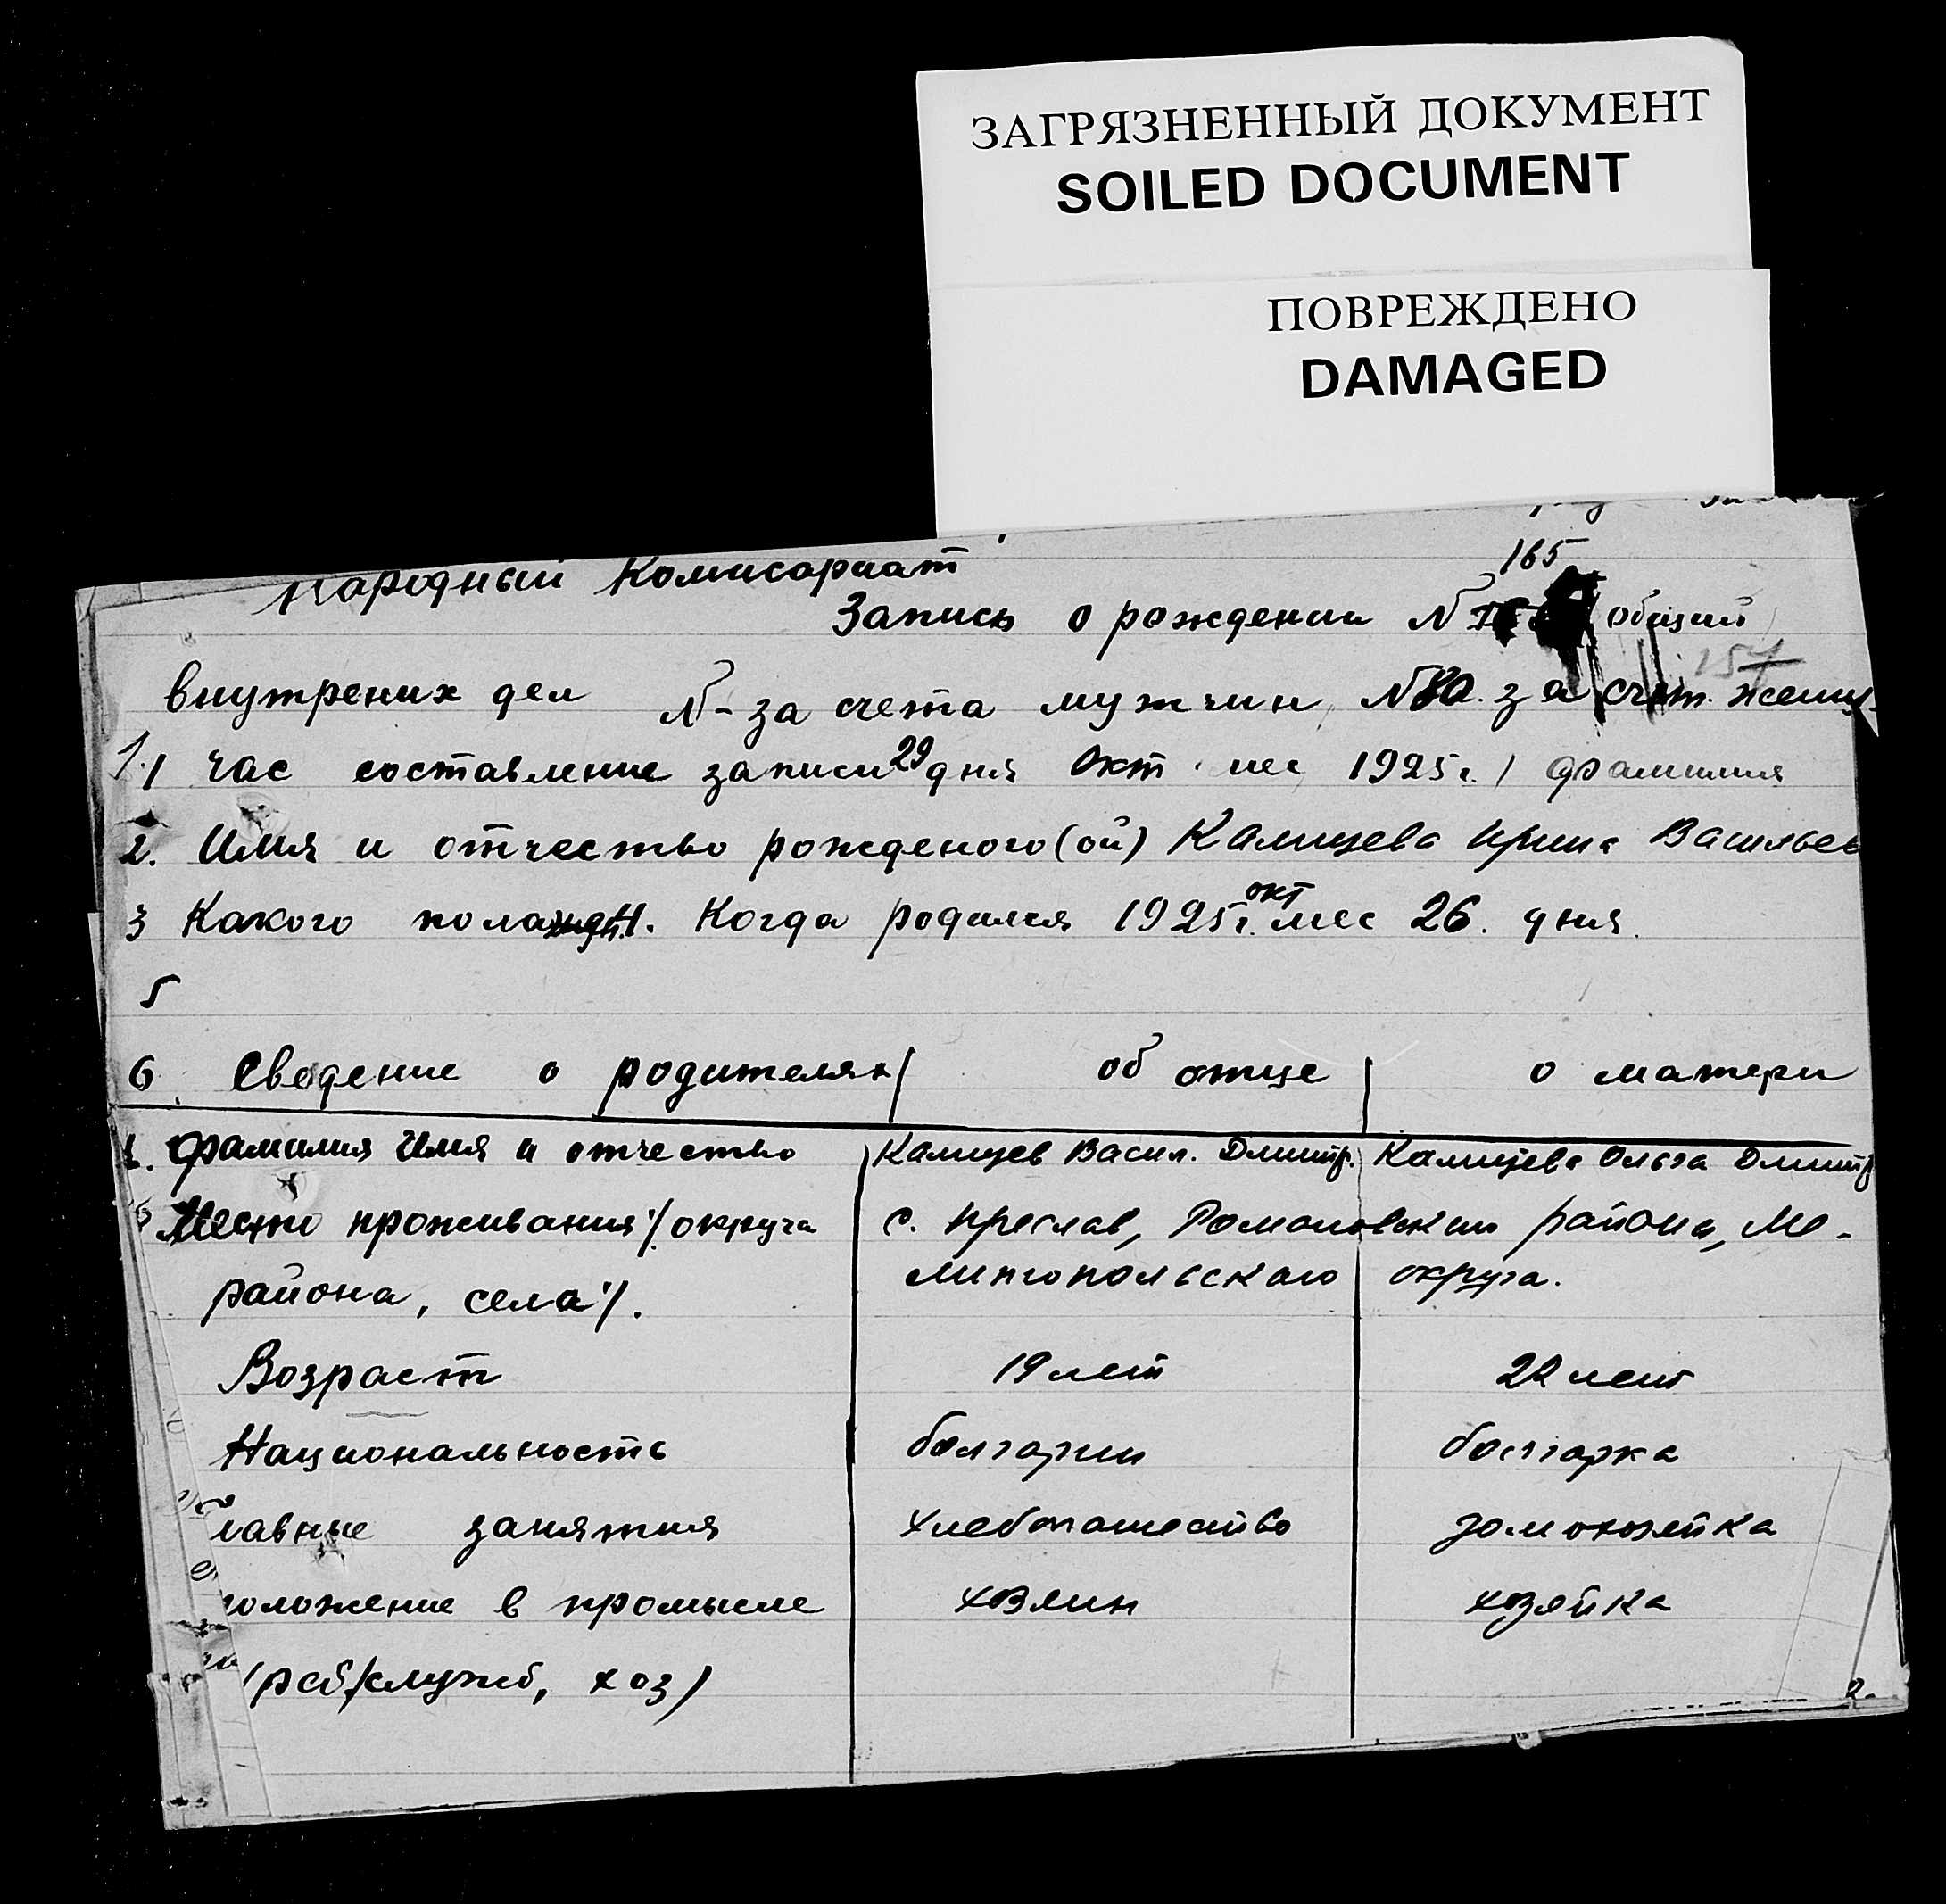 ЗАГРЯЗНЕННЫЙ ДОКУМЕНТ
SOILED DOCUMENT
ПОВРЕЖДЕНО
DAMAGED
Народный Комисариат
165
Запись о рождении N общий
157
внутрених дел N - за счета мужчин N 80. за счет. женщ.
1. час составление записи 29 дня Окт мес 1925 г. / фамилия
2. Имя и отчество рожденого (ой) Калицева Ирина Васильев
3 Какого пола . Когда родился 1925 г. окт мес 26. дня.
5
6 Сведение о родителях / об отце / о матери
1. Фамилия Имя и отчество Калицев Васил. Дмитр. Калицева Ольга Дмитр
Место проживания /. округа с. Преслав, Романовским района, Ме-
района, села /. литопольского округа.
Возраст 19 лет 22 лет
Национальность болгарин болгарка
лавные занятия хлебопашество домохозяйка
положение в промысле хозяин хозяйка
(раб/служб, хоз)
2.